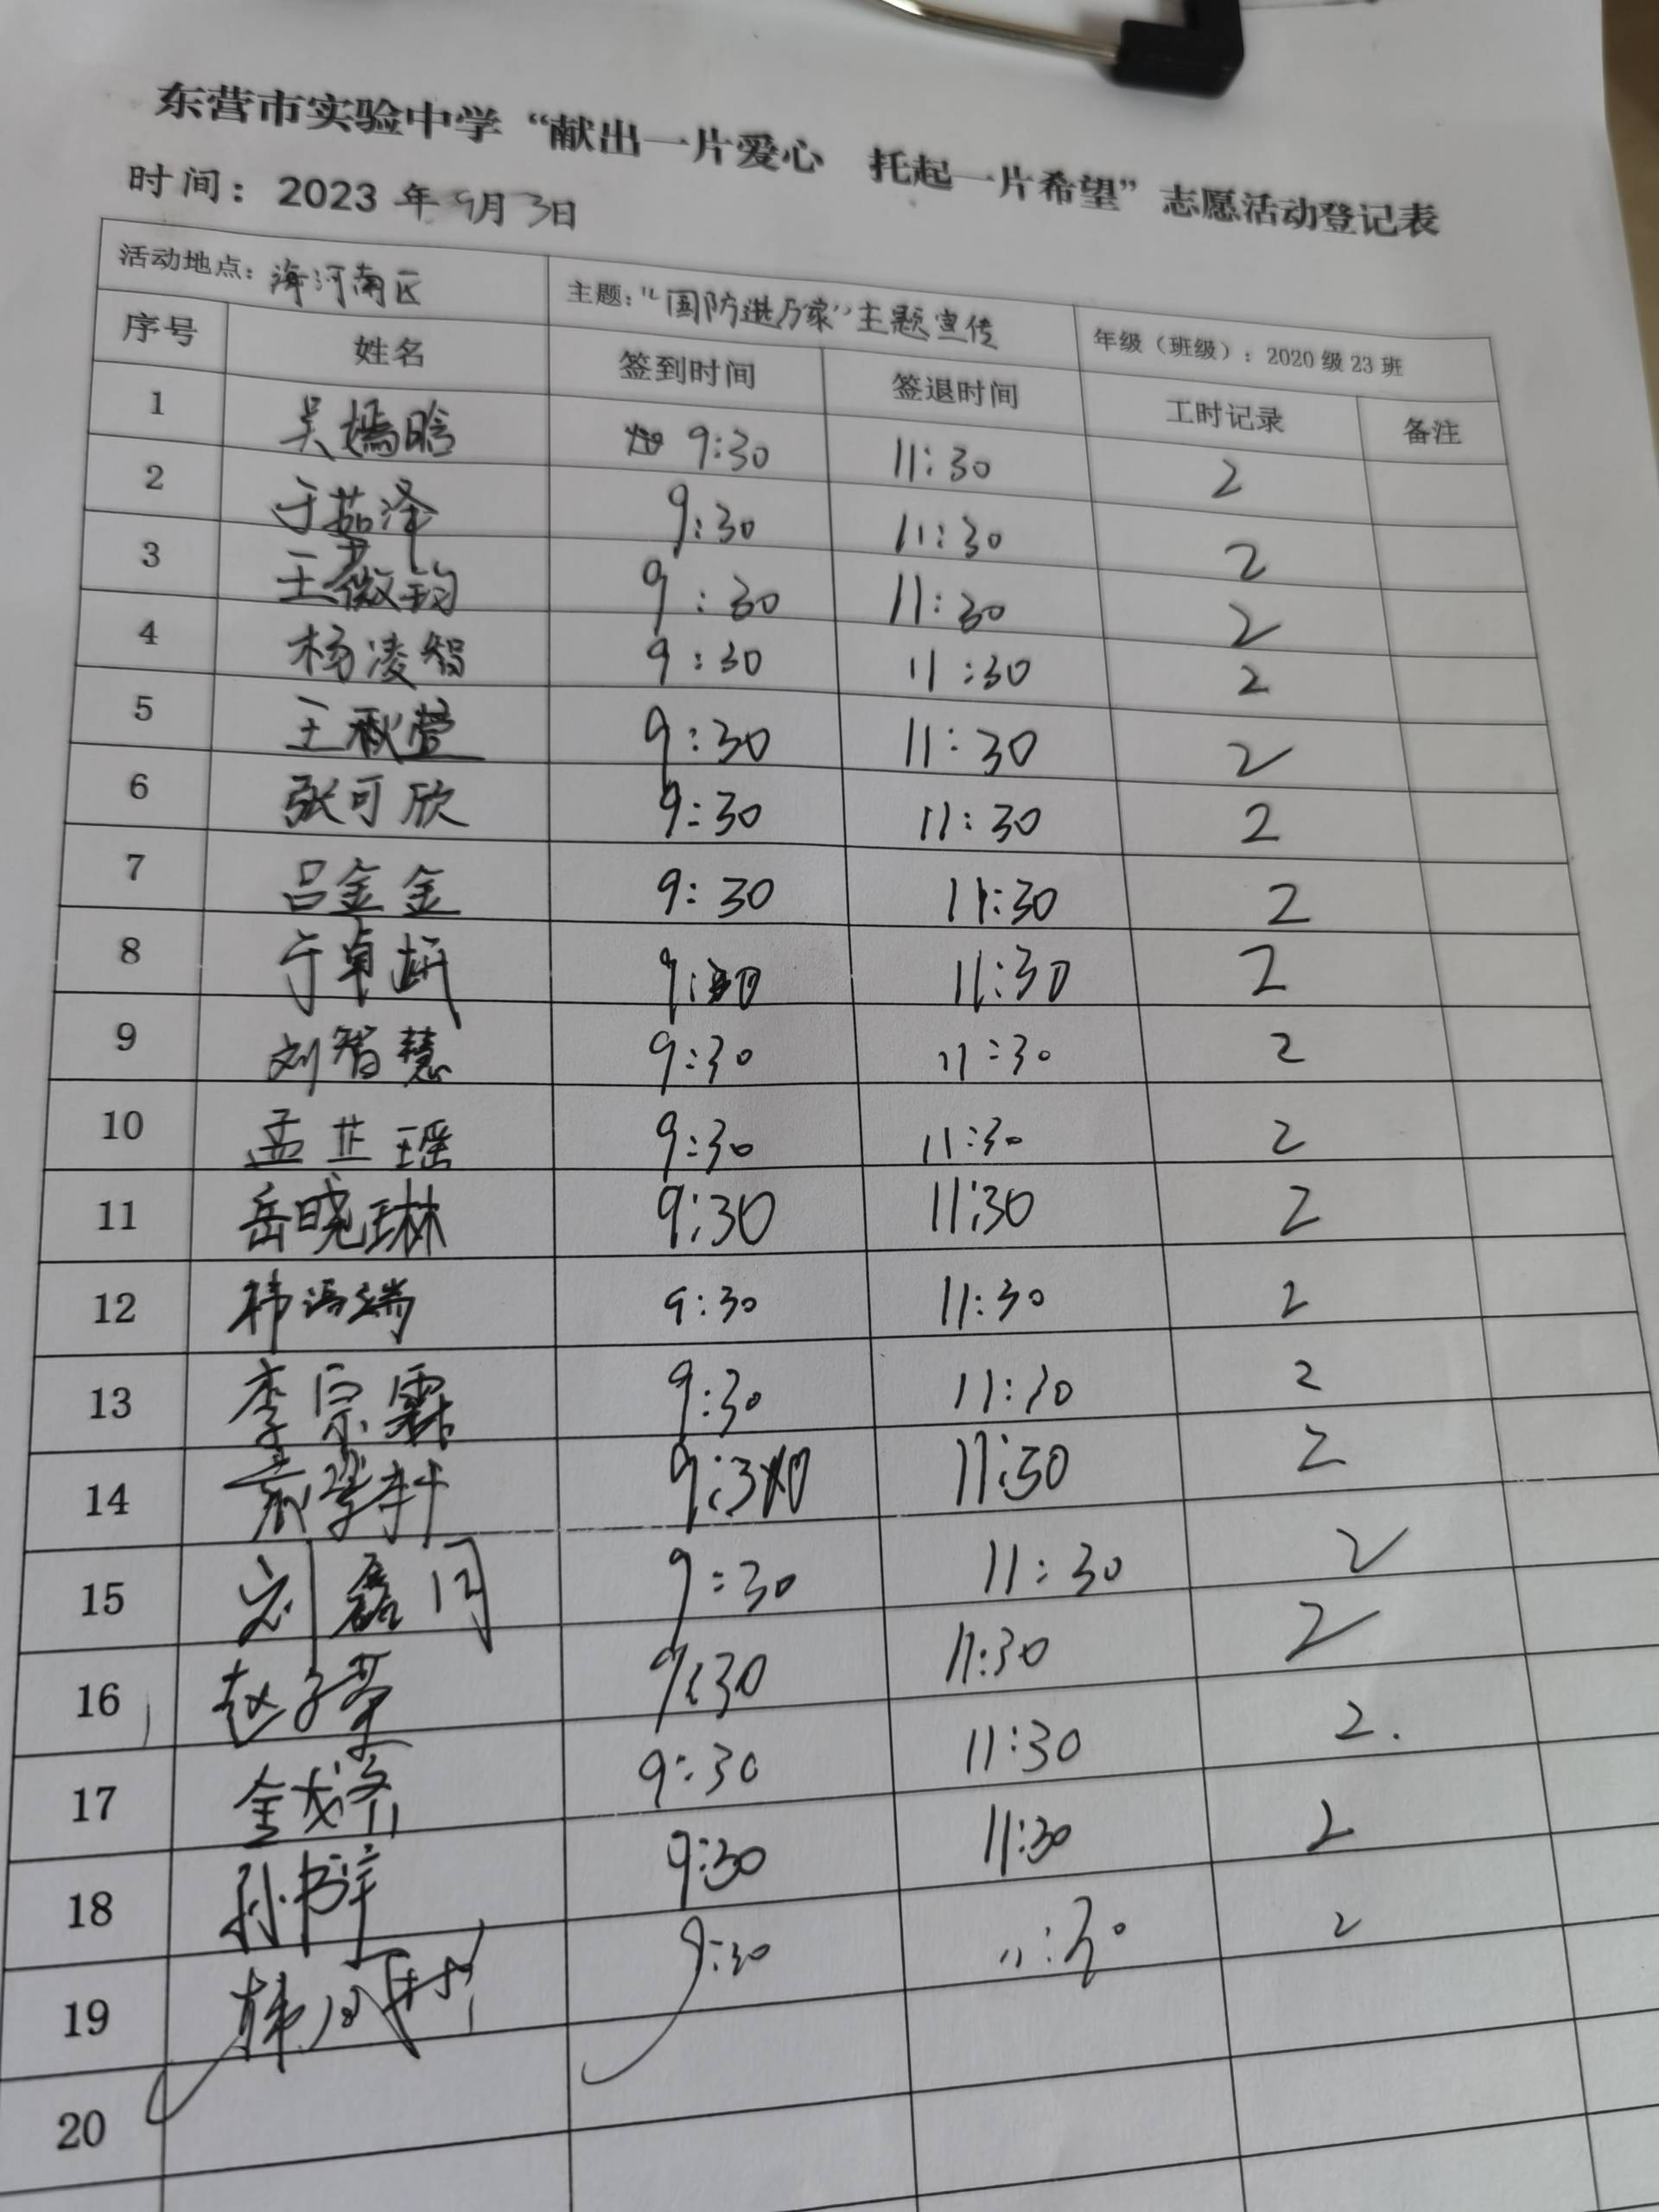 东营市实验中学“献出一片爱心 托起一片希望”志愿活动登记表
时间：2023年9月3日
活动地点：海河南区 主题：“国防进万家”主题宣传 年级（班级）：2020级23班
序号 姓名 签到时间 签退时间 工时记录 备注
1 吴嫣晗 9:30 11:30 2
2 于茹泽 9:30 11:30 2
3 王薇钧 9:30 11:30 2
4 杨凌智 9:30 11:30 2
5 王秋萱 9:30 11:30 2
6 张可欣 9:30 11:30 2
7 吕金金 9:30 11:30 2
8 于卓妍 9:30 11:30 2
9 刘智慧 9:30 11:30 2
10 孟芷瑶 9:30 11:30 2
11 岳晓琳 9:30 11:30 2
12 9:30 11:30 2
13 李宗霖 9:30 11:30 2
14 9:30 11:30 2
15 刘鑫同 9:30 11:30 2
16 赵子 9:30 11:30 2
17 9:30 11:30 2.
18 孙 9:30 11:30 2
19 韩 9:30 11:30 2
20